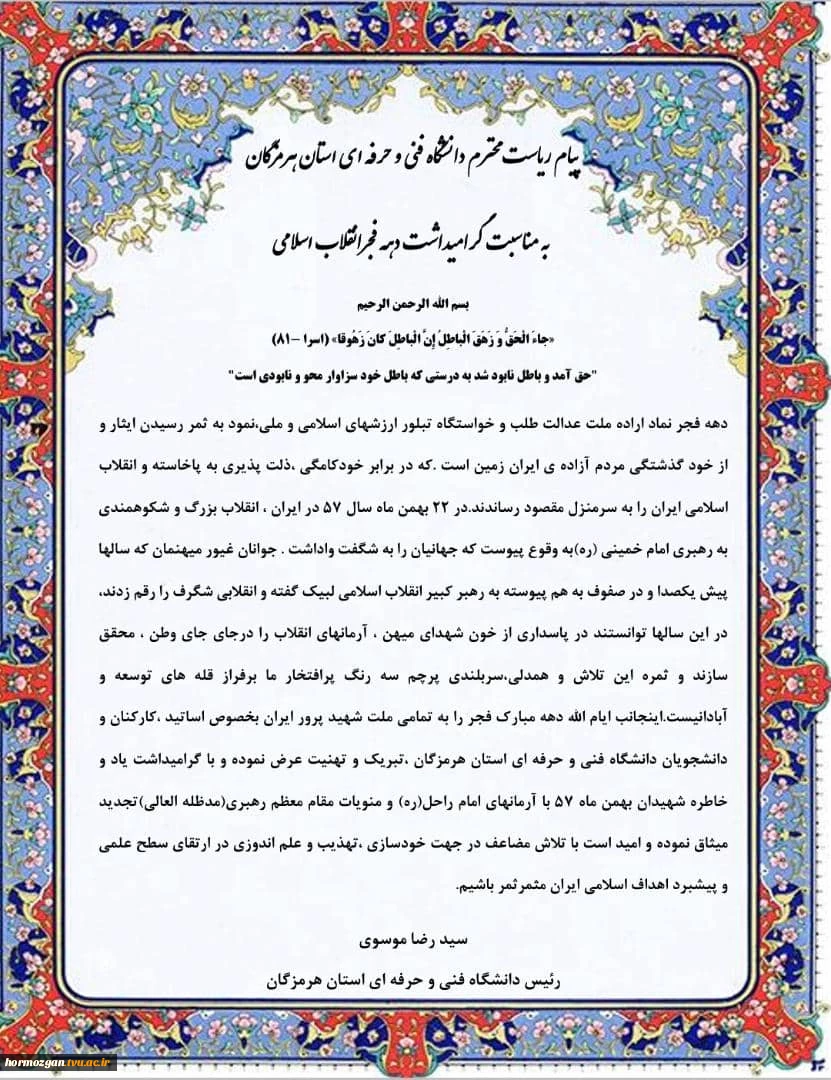 پیام ریاست محترم دانشگاه فنی و حرفه ای استان هرمزگان
به مناسبت گرامیداشت دهه فجر انقلاب اسلامی
بسم الله الرحمن الرحیم
«جاءَ الْحَقُّ وَ زَهَقَ الْباطِلُ إِنَّ الْباطِلَ كانَ زَهُوقا» (اسرا -۸۱)
"حق آمد و باطل نابود شد به درستی که باطل خود سزاوار محو و نابودی است"
دهه فجر نماد اراده ملت عدالت طلب و خواستگاه تبلور ارزشهای اسلامی و ملی،نمود به ثمر رسیدن ایثار و
از خود گذشتگی مردم آزاده ی ایران زمین است .که در برابر خودکامگی ،ذلت پذیری به پاخاسته و انقلاب
اسلامی ایران را به سرمنزل مقصود رساندند.در ۲۲ بهمن ماه سال ۵۷ در ایران ، انقلاب بزرگ و شکوهمندی
به رهبری امام خمینی (ره)به وقوع پیوست که جهانیان را به شگفت واداشت . جوانان غیور میهنمان که سالها
پیش یکصدا و در صفوف به هم پیوسته به رهبر کبیر انقلاب اسلامی لبیک گفته و انقلابی شگرف را رقم زدند،
در این سالها توانستند در پاسداری از خون شهدای میهن ، آرمانهای انقلاب را درجای جای وطن ، محقق
سازند و ثمره این تلاش و همدلی،سربلندی پرچم سه رنگ پرافتخار ما برفراز قله های توسعه و
آبادانیست.اینجانب ایام الله دهه مبارک فجر را به تمامی ملت شهید پرور ایران بخصوص اساتید ،کارکنان و
دانشجویان دانشگاه فنی و حرفه ای استان هرمزگان ،تبریک و تهنیت عرض نموده و با گرامیداشت یاد و
خاطره شهیدان بهمن ماه ۵۷ با آرمانهای امام راحل(ره) و منویات مقام معظم رهبری(مدظله العالی)تجدید
میثاق نموده و امید است با تلاش مضاعف در جهت خودسازی ،تهذیب و علم اندوزی در ارتقای سطح علمی
و پیشبرد اهداف اسلامی ایران مثمرثمر باشیم.
سید رضا موسوی
رئیس دانشگاه فنی و حرفه ای استان هرمزگان
hormozgan.tvu.ac.ir